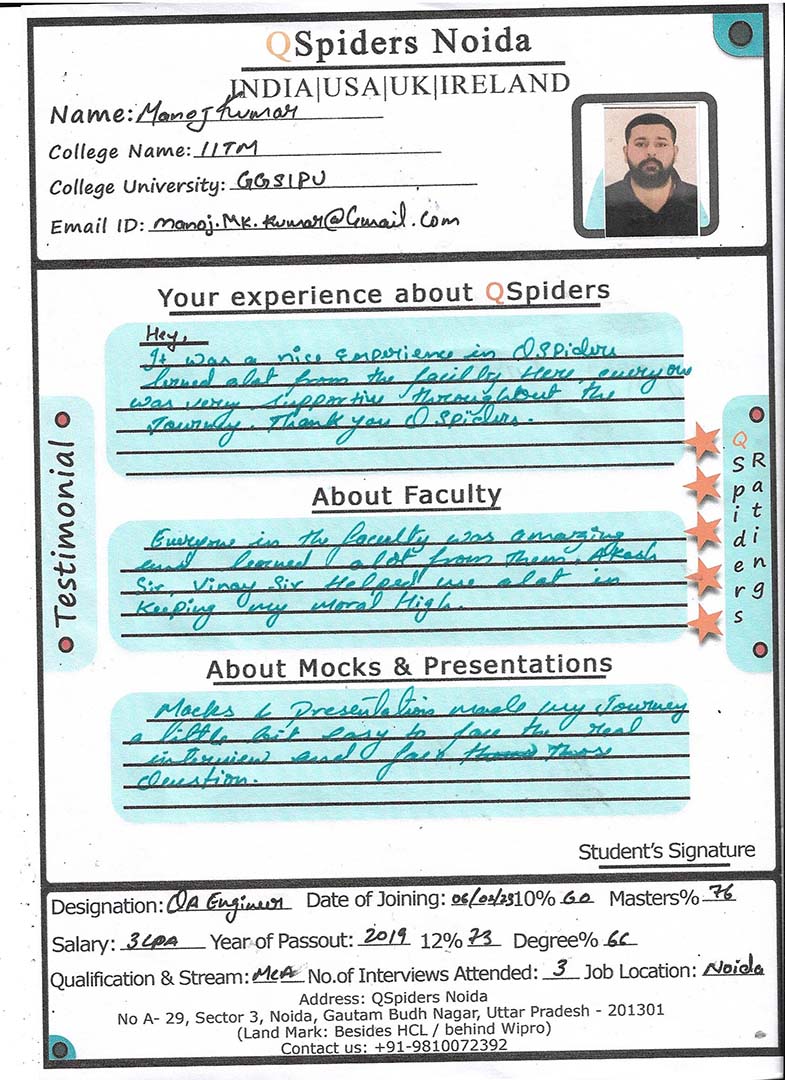 QSpiders Noida
INDIA|USA|UK|IRELAND
Name: Manoj Kumar
College Name: IITM
College University: GGSIPU
Email ID: manoj.MK.Kumar@Gmail.Com
Your experience about QSpiders
Hey,
It was a nice experience in QSpiders
lerned alot from the faculty Here, everyone
was very supportive throughtout the
Journey. Thank you QSpiders.
Testimonial
QSpiders
Ratings
About Faculty
Everyone in the faculty was amazing
and learned alot from them. Akash
Sir, Vinay Sir Helped me alot in
Keeping my moral High.
About Mocks & Presentations
Mocks & Presentation made my Journey
a little bit easy to face the real
interview and face those
Question.
Student's Signature
Designation: QA Engineer Date of Joining: 06/02/23 10% 60 Masters% 76
Salary: 3LPA Year of Passout: 2019 12% 73 Degree% 66
Qualification & Stream: MCA No.of Interviews Attended: 3 Job Location: Noida
Address: QSpiders Noida
No A- 29, Sector 3, Noida, Gautam Budh Nagar, Uttar Pradesh - 201301
(Land Mark: Besides HCL / behind Wipro)
Contact us: +91-9810072392